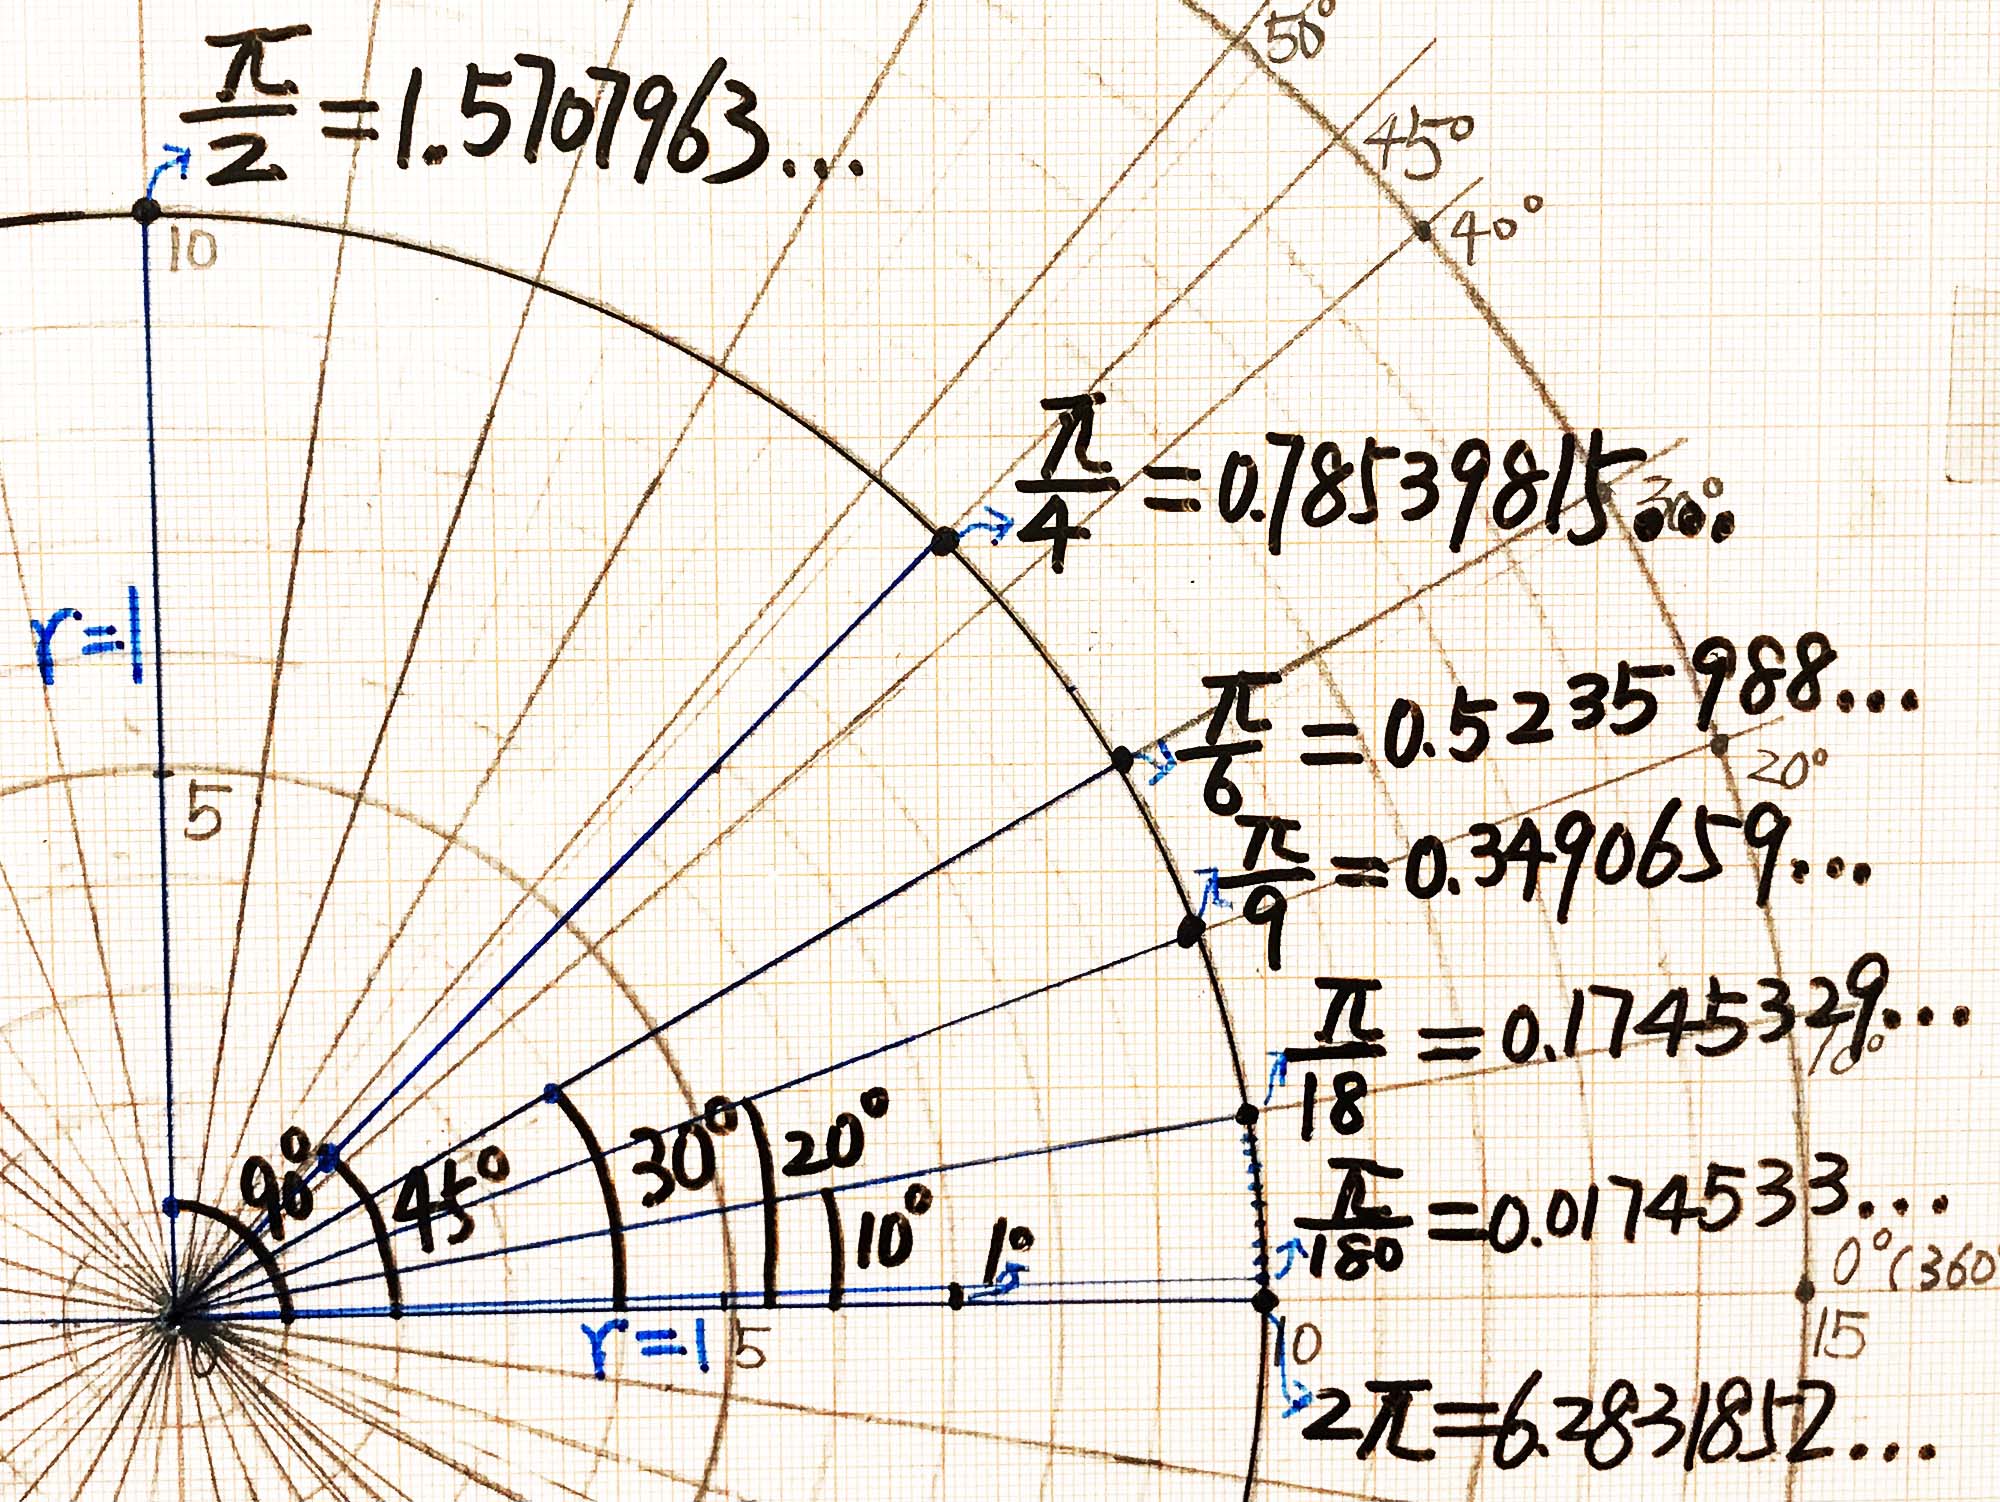 50°
π/2 = 1.5707963...
45°
40°
10
π/4 = 0.78539815...
30°
r=1
π/6 = 0.5235988...
20°
5
π/9 = 0.3490659...
π/18 = 0.1745329...
10°
90°
45°
30°
20°
10°
1°
π/180 = 0.0174533...
0°(360
r=1
5
10
15
0
2π=6.2831852...